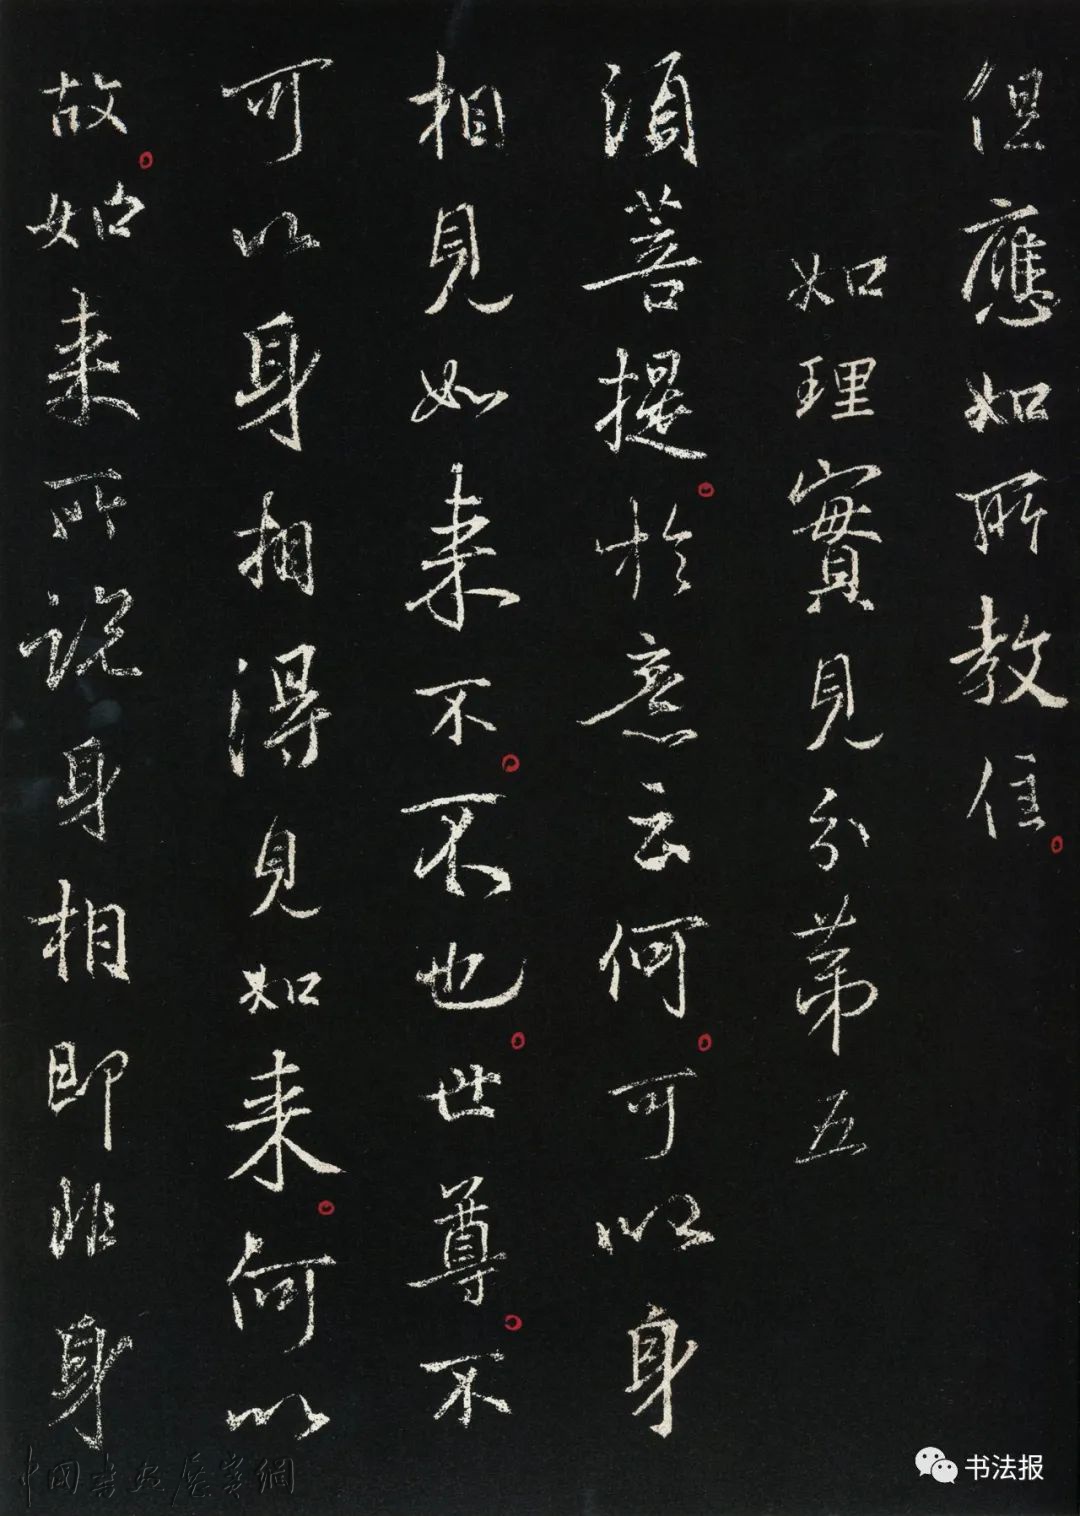 但應如所教住。
如理實見分第五
須菩提。於意云何。可以身
相見如来不。不也。世尊。不
可以身相得見如来。何以
故。如来所説身相即非身
书法报